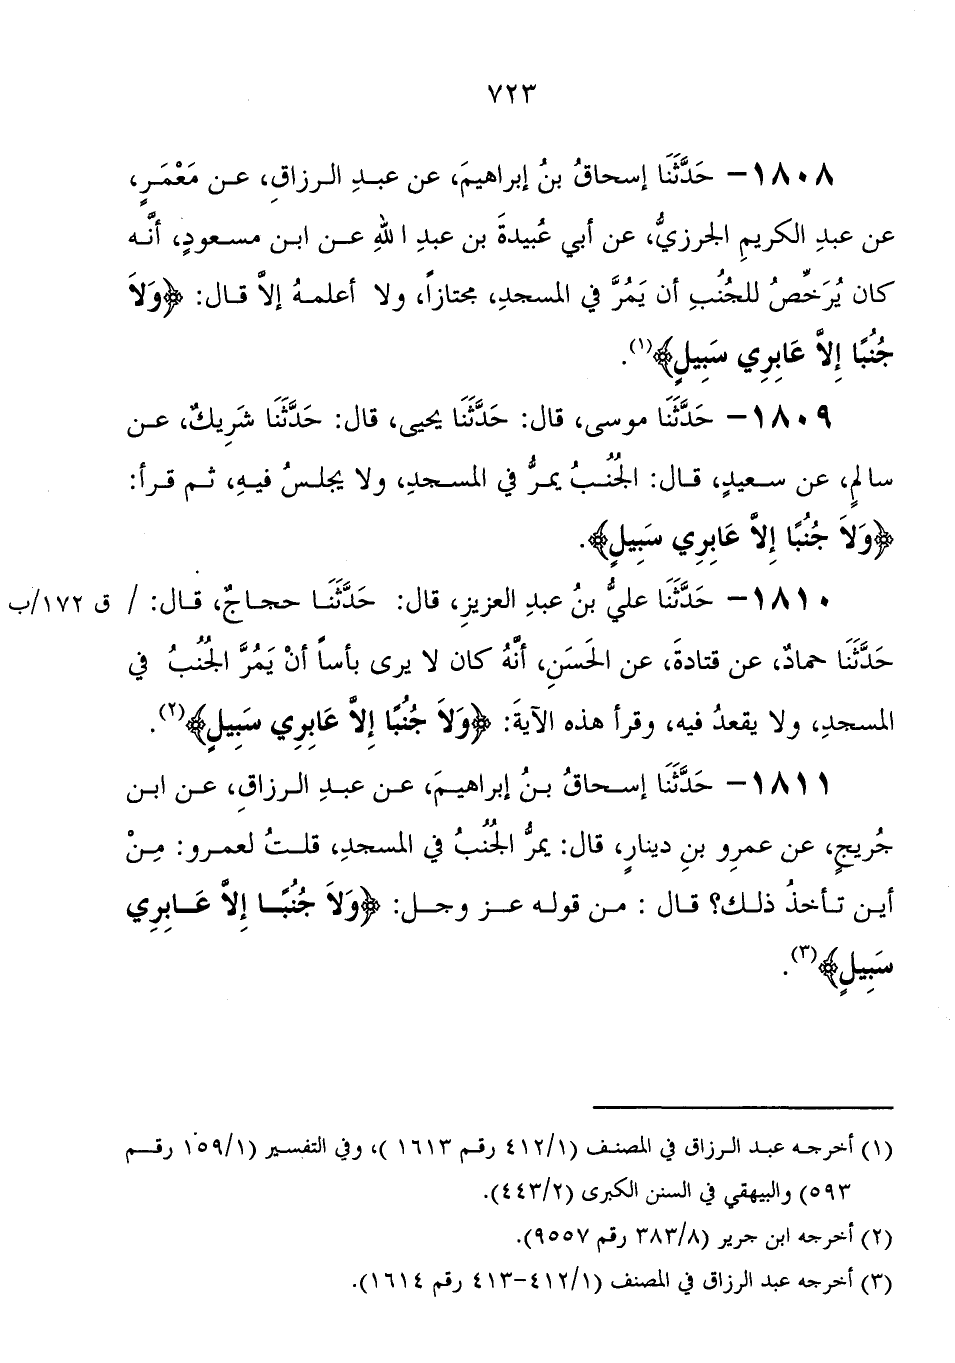 ٧٢٣
١٨٠٨- حَدَّثَنَا إسحاقُ بنُ إبراهيمَ، عن عبدِ الرزاقِ، عن مَعْمَرٍ،
عن عبدِ الكريمِ الجرزيُّ، عن أبي عُبيدةَ بن عبدِ اللهِ عن ابن مسعودٍ، أنَّه
كان يُرَخِّصُ للجُنُبِ أن يَمُرَّ في المسجدِ، مجتازاً، ولا أعلمهُ إلاَّ قال: ﴿وَلاَ
جُنُبًا إِلاَّ عَابِرِي سَبِيلٍ﴾(١).
١٨٠٩- حَدَّثَنَا موسى، قال: حَدَّثَنَا يحيى، قال: حَدَّثَنَا شَرِيكٌ، عن
سالمٍ، عن سعيدٍ، قال: الجُنُبُ يمرُّ في المسجدِ، ولا يجلسُ فيهِ، ثم قرأ:
﴿وَلاَ جُنُبًا إِلاَّ عَابِرِي سَبِيلٍ﴾.
١٨١٠- حَدَّثَنَا عليُّ بنُ عبدِ العزيزِ، قال: حَدَّثَنَا حجاجٌ، قال: / ق ١٧٢/ب
حَدَّثَنَا حمادٌ، عن قتادةَ، عن الحَسَنِ، أنَّهُ كان لا يرى بأساً أنْ يَمُرَّ الجُنُبُ في
المسجدِ، ولا يقعدُ فيه، وقرأ هذه الآيةَ: ﴿وَلاَ جُنُبًا إِلاَّ عَابِرِي سَبِيلٍ﴾(٢).
١٨١١- حَدَّثَنَا إسحاقُ بنُ إبراهيمَ، عن عبدِ الرزاقِ، عن ابن
جُريجٍ، عن عمرِو بنِ دينارٍ، قال: يمرُّ الجُنُبُ في المسجدِ، قلتُ لعمرو: مِنْ
أين تأخذُ ذلك؟ قال : من قوله عز وجل: ﴿وَلاَ جُنُبًا إِلاَّ عَابِرِي
سَبِيلٍ﴾(٣).
(١) أخرجه عبد الرزاق في المصنف (٤١٢/١ رقم ١٦١٣ )، وفي التفسير (١٥٩/١ رقم
٥٩٣) والبيهقي في السنن الكبرى (٤٤٣/٢).
(٢) أخرجه ابن جرير (٣٨٣/٨ رقم ٩٥٥٧).
(٣) أخرجه عبد الرزاق في المصنف (٤١٢/١-٤١٣ رقم ١٦١٤).